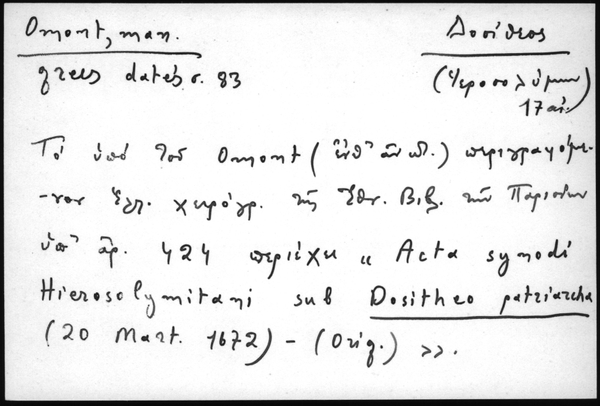 Omont, man.
Δοσίθεος
grecs datés σ. 83
(Ἱεροσολύμων)
17 αἰ.
Τό ὑπό τοῦ Omont (ἔνθ' ἀν.) περιγραφόμε-
-νον Ἑλλ. χειρόγρ. τῆς Ἐθν. Βιβ. τῶν Παρισίων
ὑπ' ἀρ. 424 περιέχει « Acta synodi
Hierosolymitani sub Dositheo patriarcha
(20 Mart. 1672) – (Orig.) ».